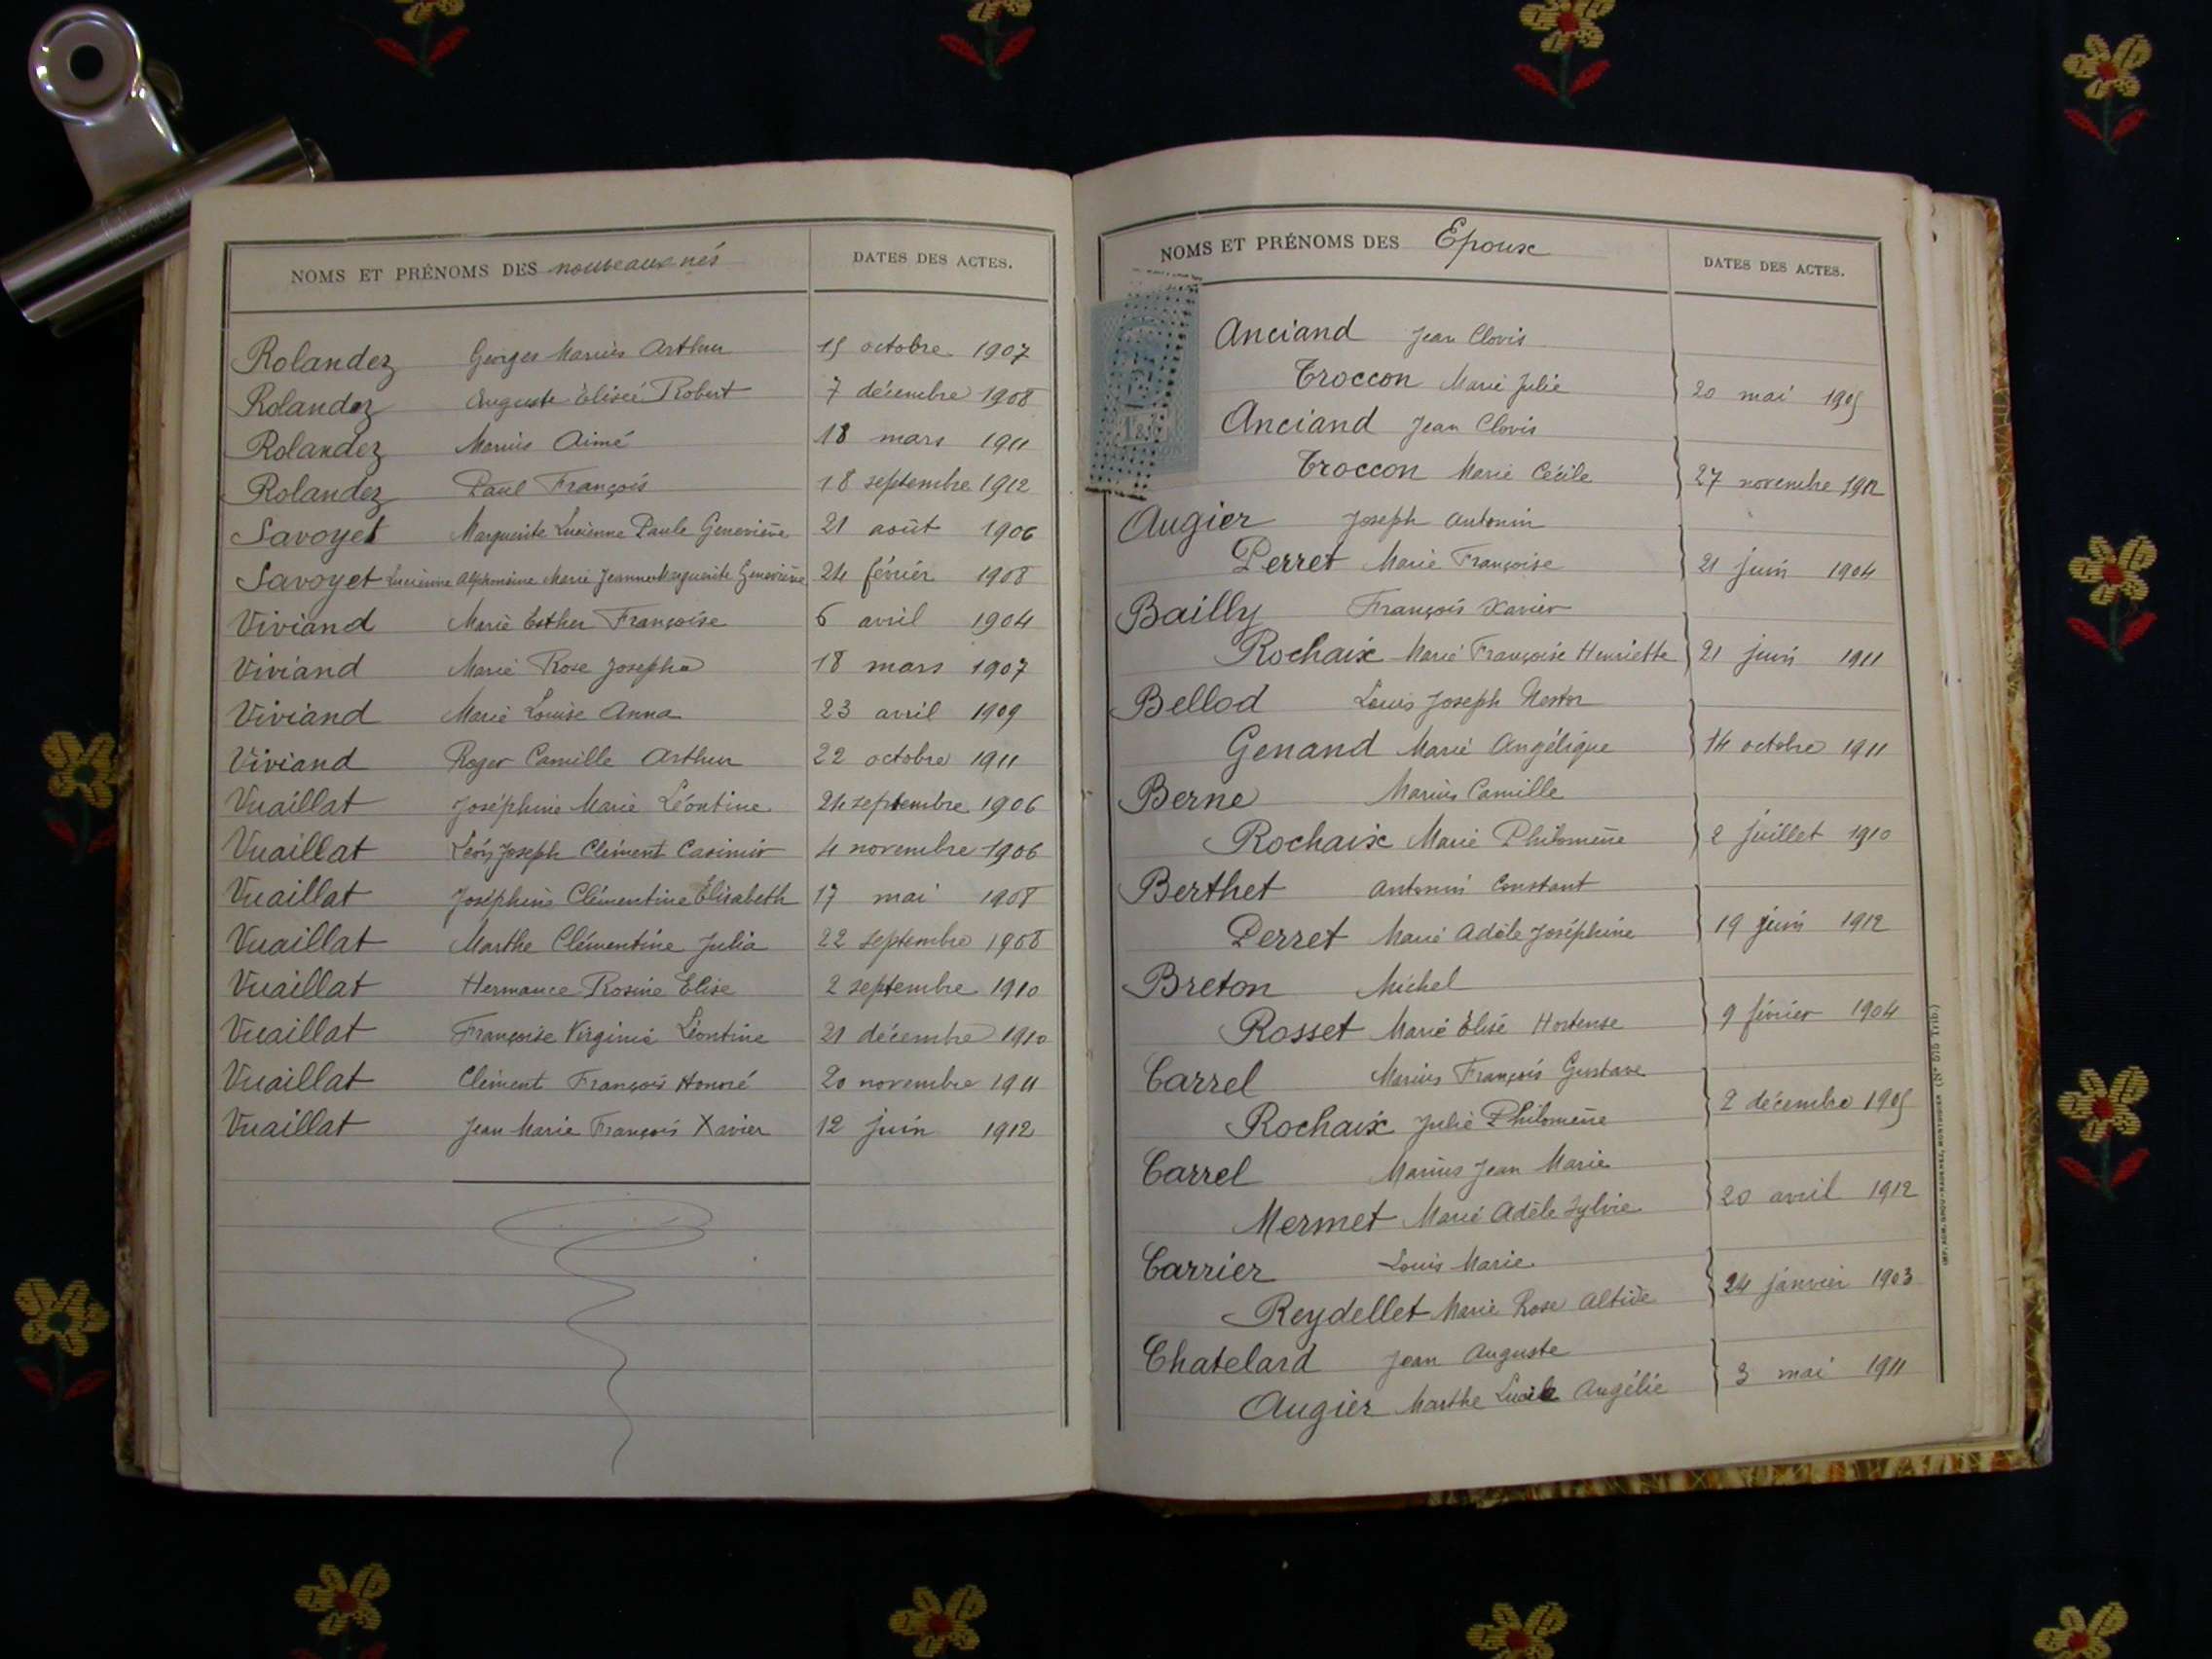 NOMS ET PRÉNOMS DES nouveaux nés DATES DES ACTES.
Rolandez Georges Marius Arthur 15 octobre 1907
Rolandez Auguste Élisée Robert 7 décembre 1908
Rolandez Marius Aimé 18 mars 1911
Rolandez Paul François 18 septembre 1912
Savoyet Marguerite Lucienne Paule Geneviève 21 août 1906
Savoyet Lucienne Alphonsine Marie Jeanne Marguerite Geneviève 24 février 1908
Viviand Marie Esther Françoise 6 avril 1904
Viviand Marie Rose Josepha 18 mars 1907
Viviand Marie Louise Anna 23 avril 1909
Viviand Roger Camille Arthur 22 octobre 1911
Vuaillat Joséphine Marie Léontine 24 septembre 1906
Vuaillat Léon Joseph Clément Casimir 4 novembre 1906
Vuaillat Joséphine Clémentine Élisabeth 17 mai 1908
Vuaillat Marthe Clémentine Julia 22 septembre 1908
Vuaillat Hermance Rosine Elise 2 septembre 1910
Vuaillat Françoise Virginie Léontine 21 décembre 1910
Vuaillat Clément François Honoré 20 novembre 1911
Vuaillat Jean Marie François Xavier 12 juin 1912
NOMS ET PRÉNOMS DES Epoux DATES DES ACTES.
Anciand Jean Clovis
Troccon Marie Julie 20 mai 1905
Anciand Jean Clovis
Troccon Marie Cécile 27 novembre 1912
Augier Joseph Antonin
Perret Marie Françoise 21 juin 1904
Bailly François Xavier
Rochaix Marie Françoise Henriette 21 juin 1911
Bellod Louis Joseph Nestor
Genand Marie Angélique 14 octobre 1911
Berne Marius Camille
Rochaix Marie Philomène 2 juillet 1910
Berthet Antonin Constant
Perret Marie Adèle Joséphine 19 juin 1912
Breton Michel
Rosset Marie Élise Hortense 9 février 1904
Carrel Marius François Gustave
Rochaix Julie Philomène 2 décembre 1905
Carrel Marius Jean Marie
Mermet Marie Adèle Sylvie 20 avril 1912
Carrier Louis Marie
Reydellet Marie Rose 24 janvier 1903
Chatelard Jean Auguste
Augier Marthe Lucile Angélie 3 mai 1911